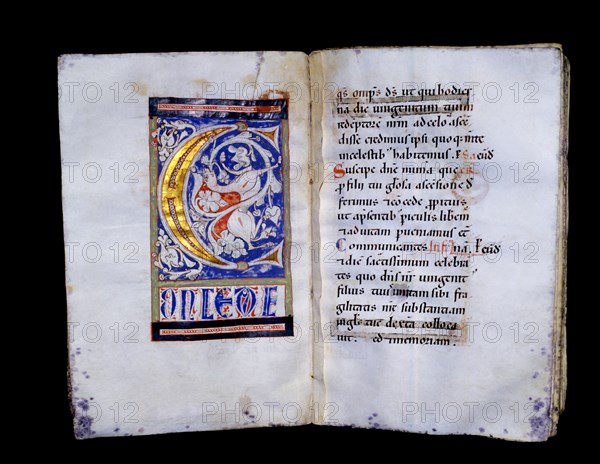 C
ONCEDE
q̄s omp̄s d̄s ut qui hodier
na die unigenitum tuum
redēptorē nrm ad celos ascē
disse credimus ipsi quoq; mente
in celestib; habitemus. P.
Suscipe dn̄e munera que
p filii tui gl'osa ascēsione d
ferimus et cōcede, p̱pitius
ut a psentib; piculis libem
et ad uitam pueniamus et̄
Communicantes
et diē sacratissimum celebra
tes quo dn̄s nr̄ unigenit
filius tuus unitam sibi fra
gilitatis nr̄e substantiam
in gl'ę tuę dext̄a colloca
uit. Sed et memoriam.
PHOTO 12